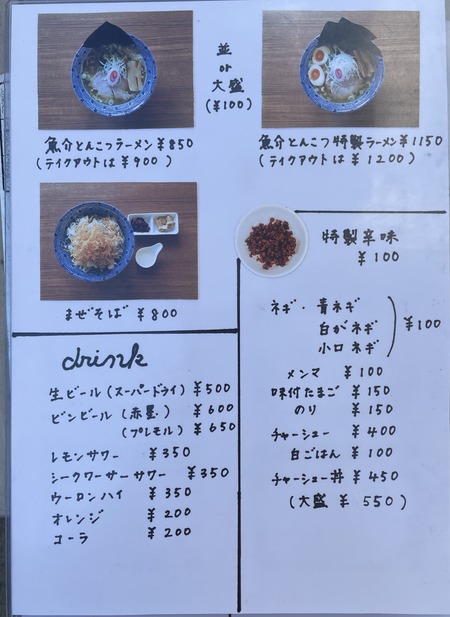 並
or
大
盛
(¥100)
魚介とんこつラーメン ¥850
(テイクアウトは ¥900 )
魚介とんこつ特製ラーメン ¥1150
(テイクアウトは ¥1200 )
まぜそば ¥800
特製辛味
¥100
ネギ・青ネギ
白がネギ
小口ネギ
¥100
メンマ ¥100
味付たまご ¥150
のり ¥150
チャーシュー ¥400
白ごはん ¥100
チャーシュー丼 ¥450
(大盛 ¥ 550)
drink
生ビール (スーパードライ) ¥500
ビンビール (赤星) ¥600
(プレモル) ¥650
レモンサワー ¥350
シークワーサーサワー ¥350
ウーロンハイ ¥350
オレンジ ¥200
コーラ ¥200